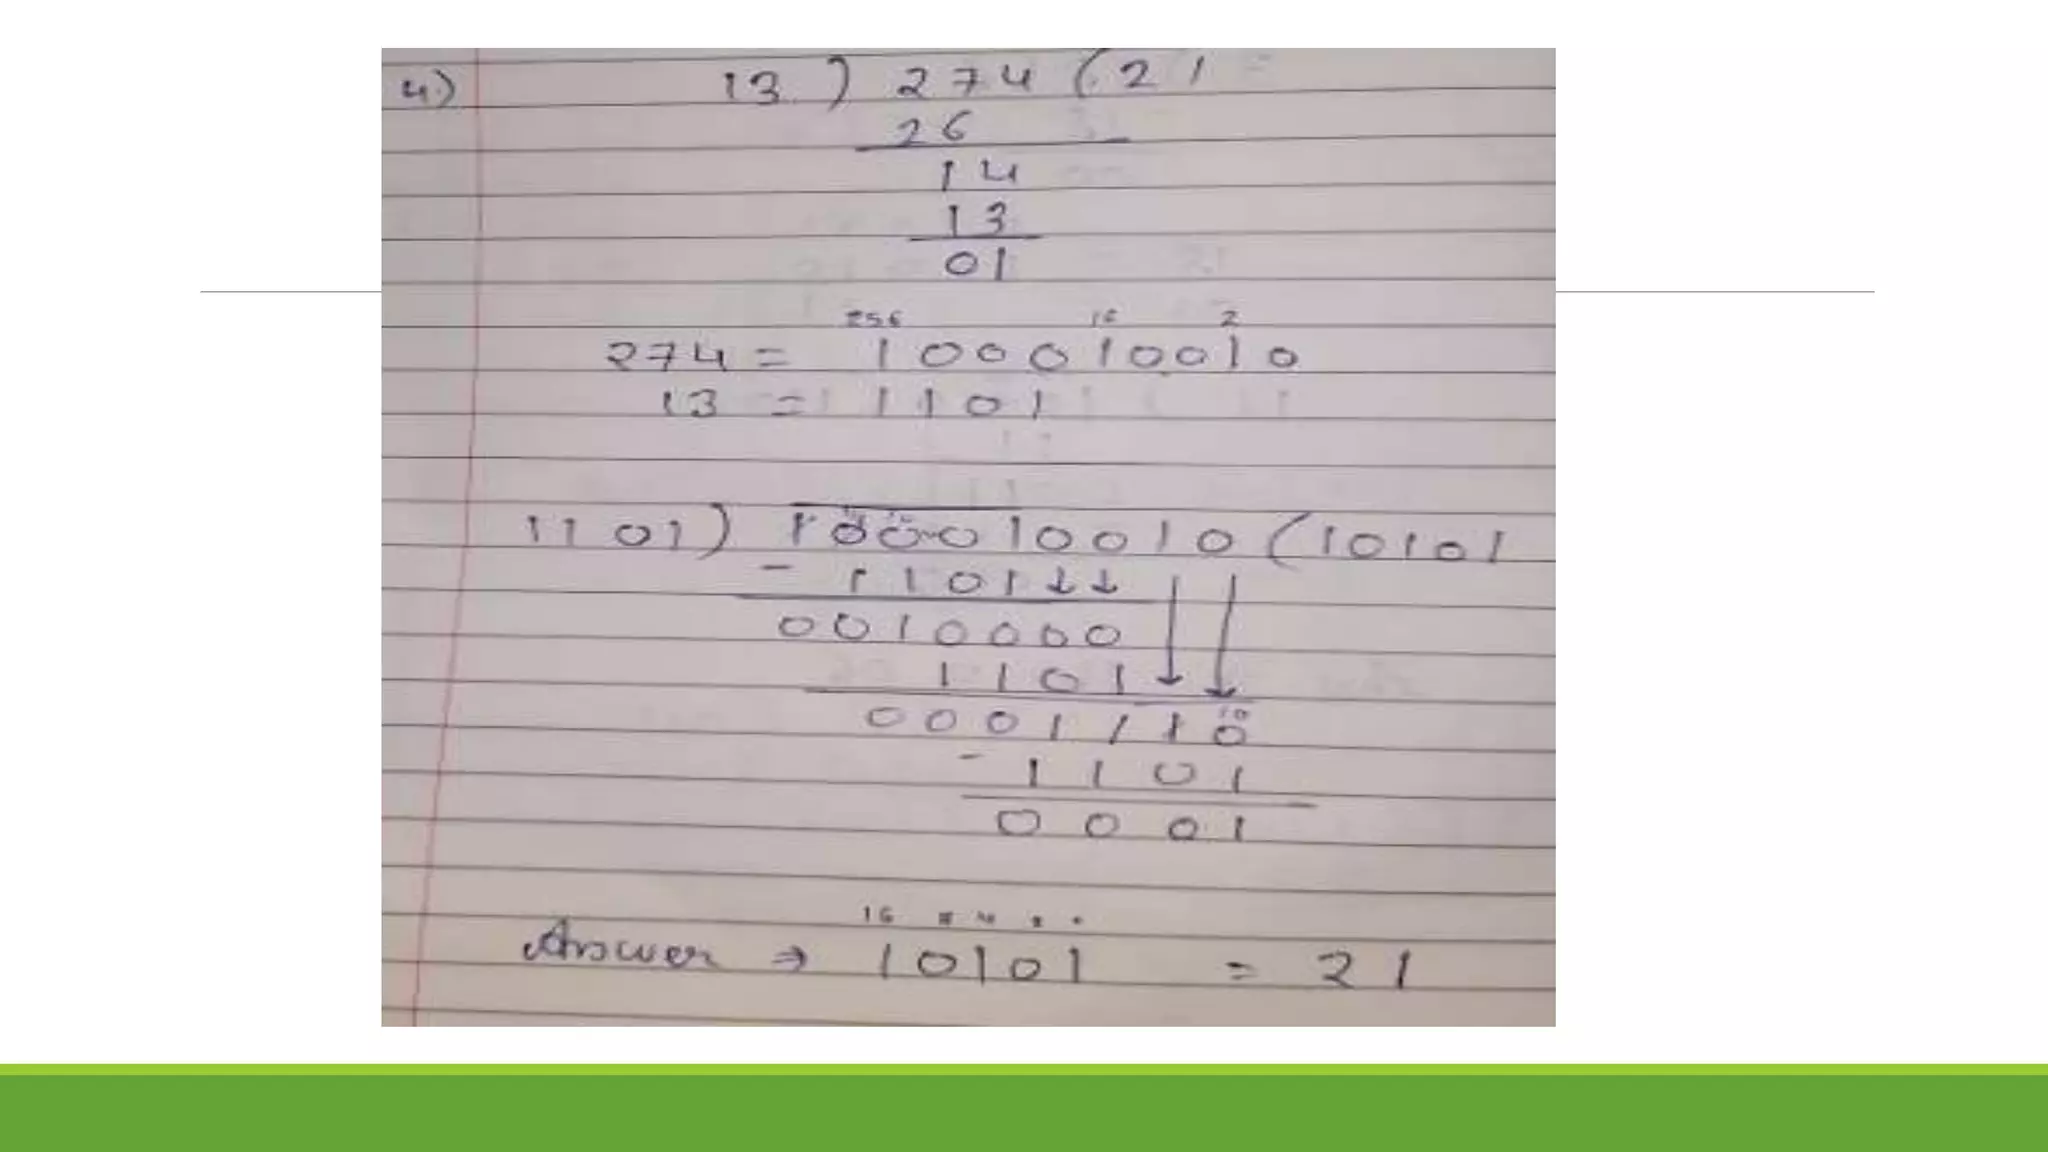 4.) 13 ) 274 ( 21
26
14
13
01
256 16 2
274 = 100010010
13 = 1101
1101 ) 100010010 ( 10101
- 1101↓↓
0010000
1101
10
0001110
- 1101
0001
16 8 4 2 1
Answer ⇒ 10101 = 21